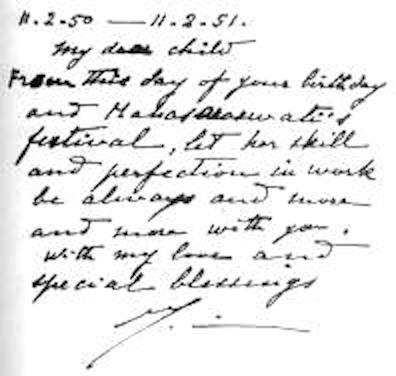 11.2.50 — 11.2.51.
My dear child
From this day of your birthday
and Mahasaraswati's
festival, let her skill
and perfection in work
be always and more
and more with you.
With my love and
special blessings